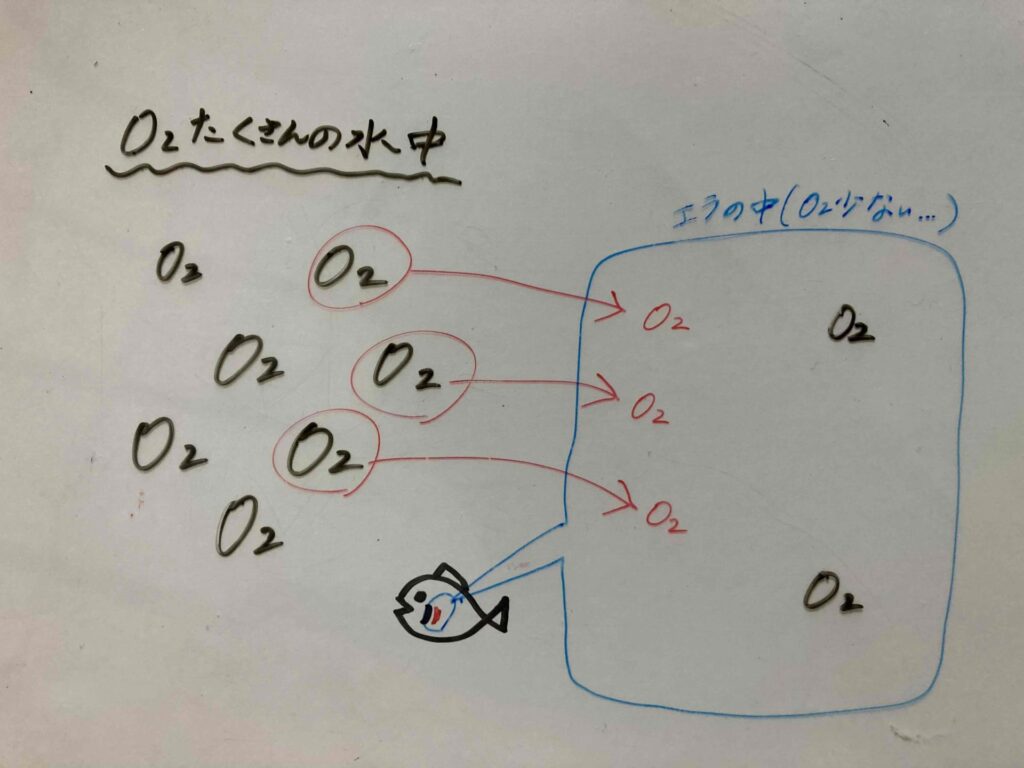 O₂たくさんの水中
エラの中(O₂少ない…)
O₂ O₂
O₂ O₂
O₂ O₂
O₂
O₂ O₂
O₂
O₂
O₂